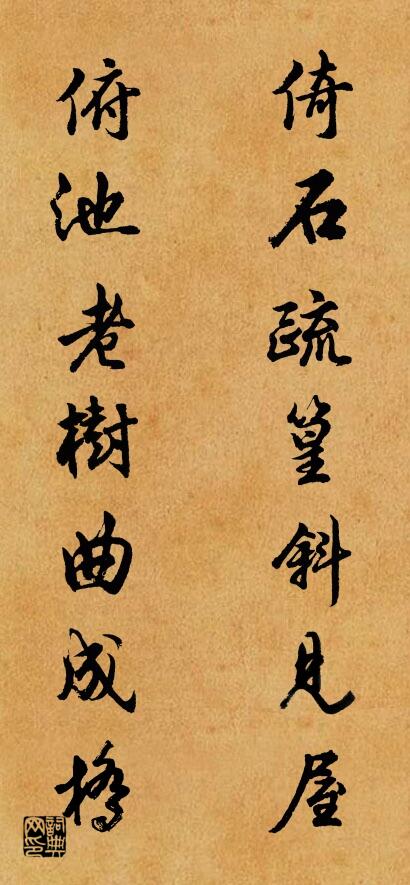 倚石疏篁斜見屋
俯池老樹曲成橋
詞典網印